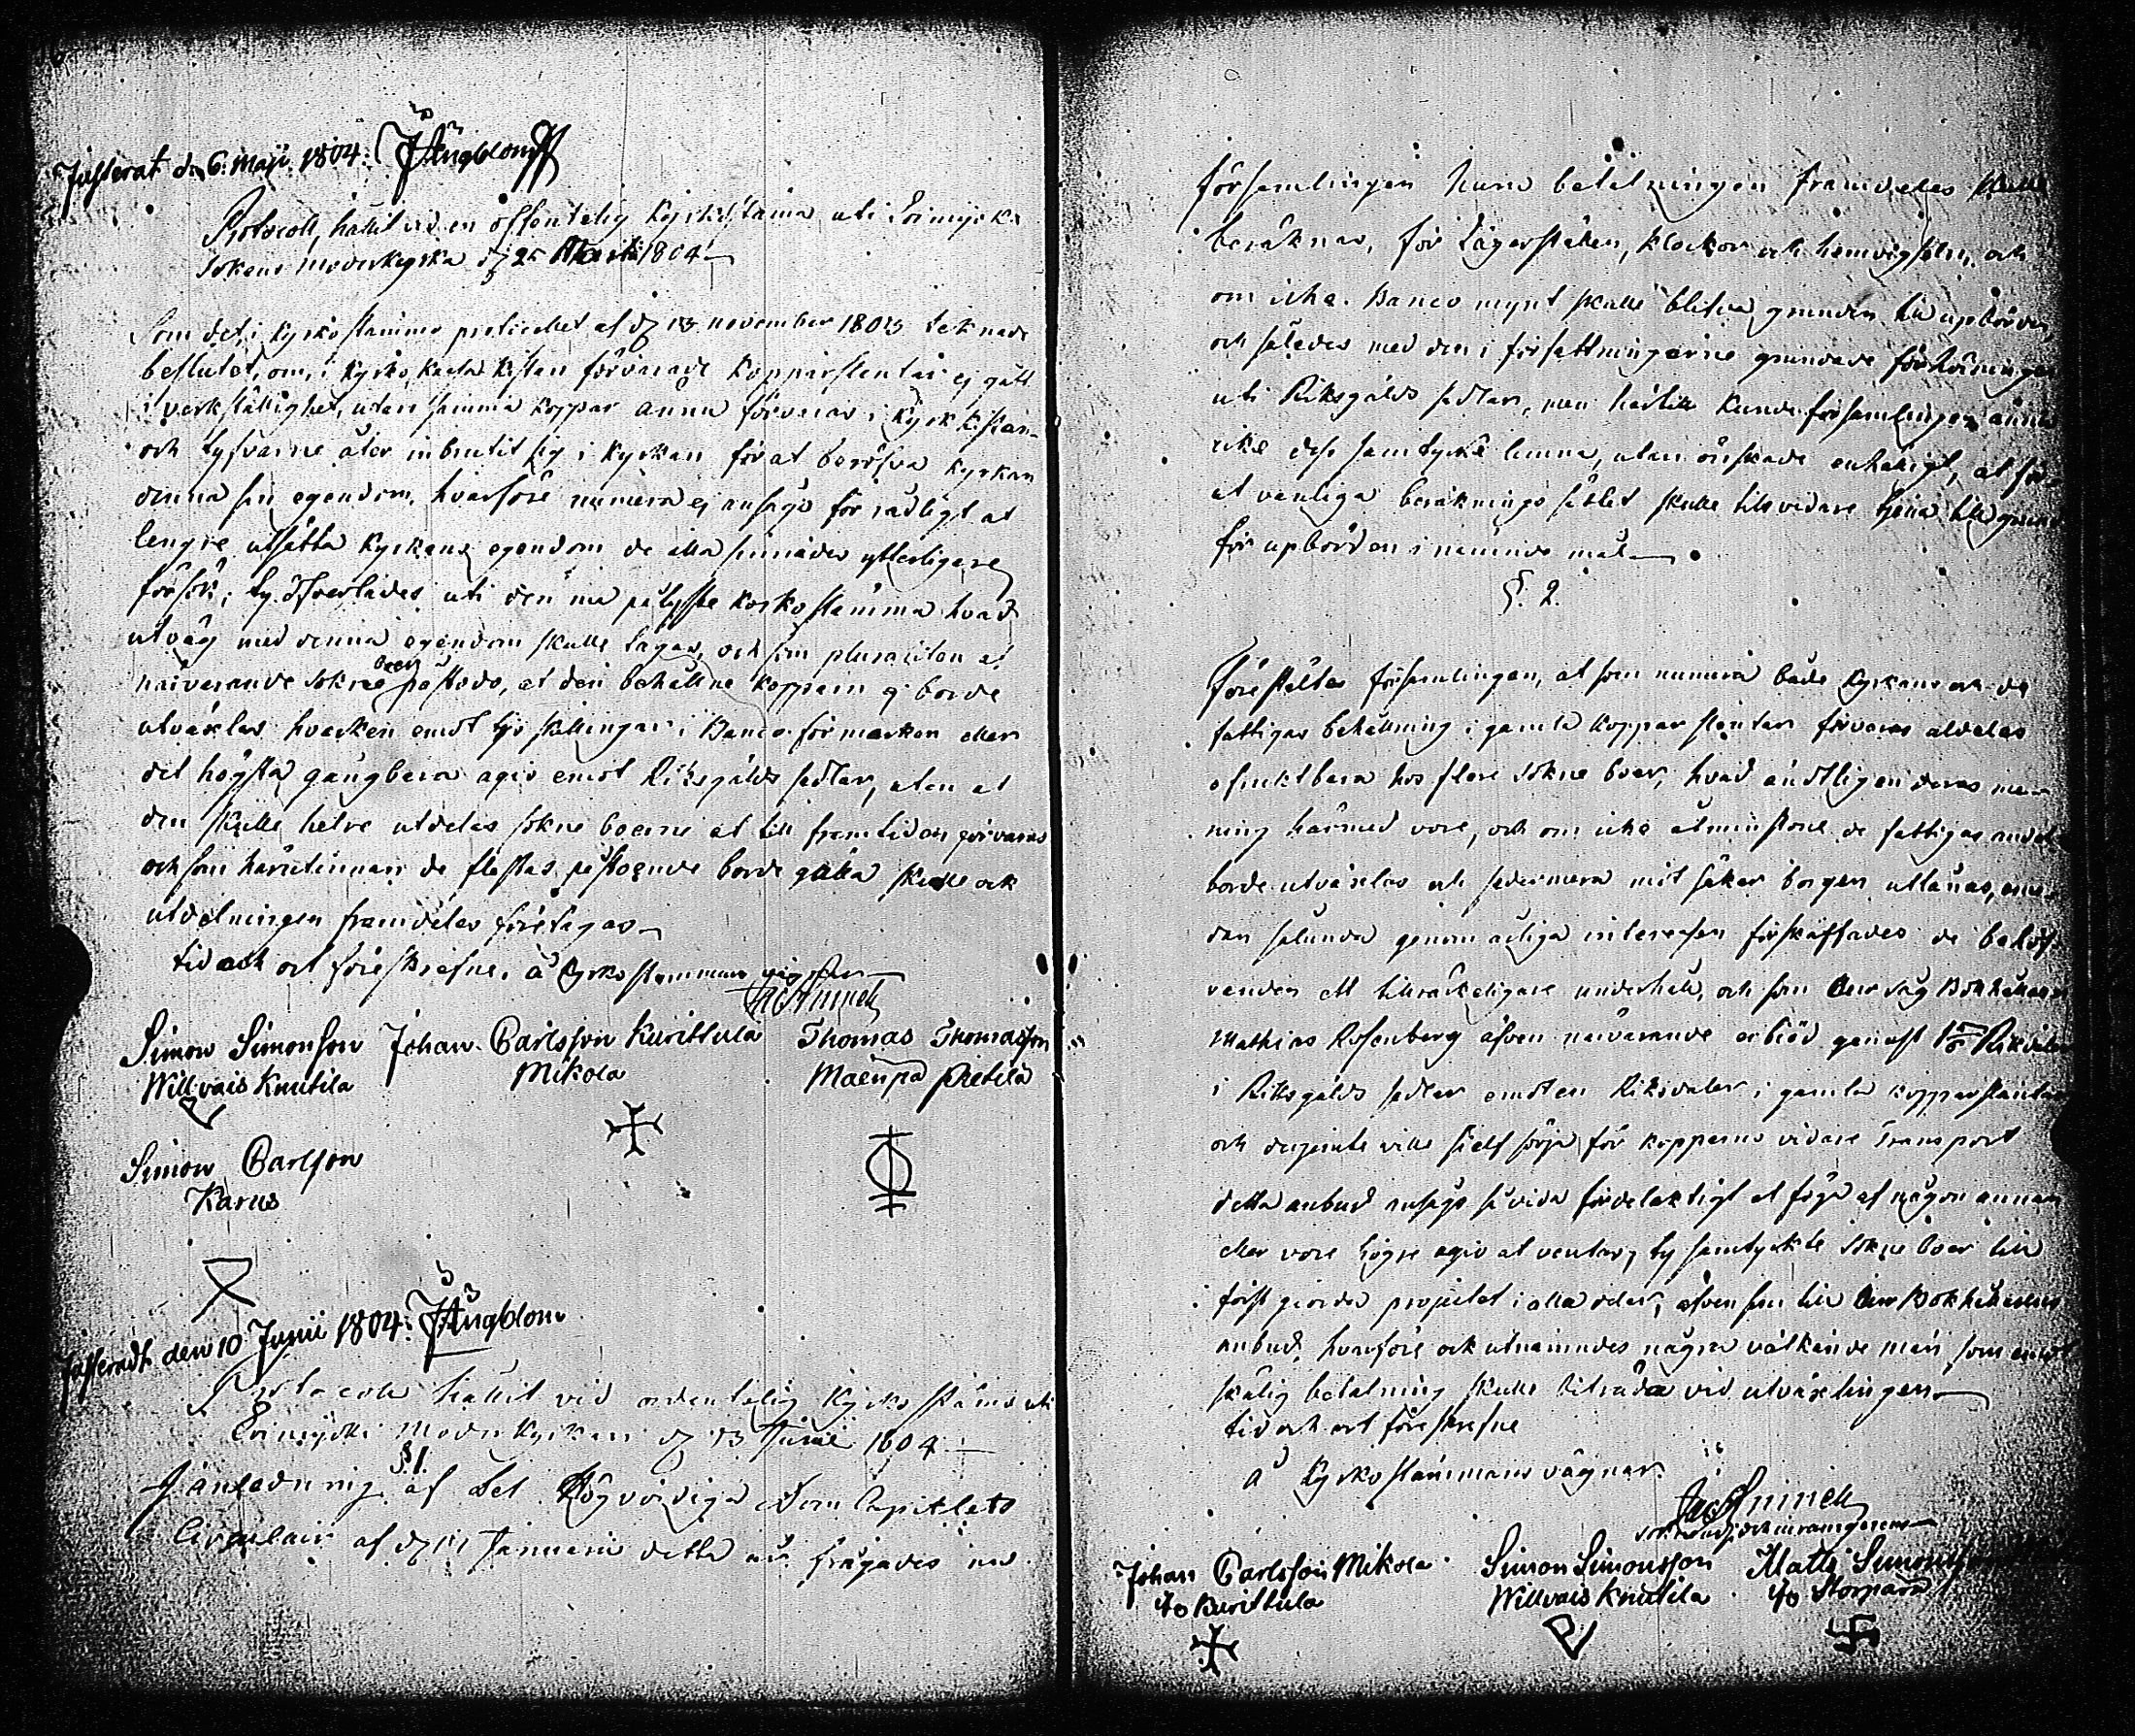 Justerat d. 6. Maji 1804. J Ångblom
Protocoll, hållit vid en offentelig Kyrkostäma uti Eurajoki
Sokens moderkyrka d. 2 1804
Som det, i kyrkostämmo protocollet af d. 13 november 1803 teknade
beslutet, om, i kyrko kistan förvarade Kopparslantar ej gått
i verkställighet, utan samma koppar ännu förvaras i kyrk kistan
och tjufvarne åter inbrutit sig i kyrkan för at beröfva kyrkan
denna sin egendom, hvarföre numera ej ansågs för rådligt at
lengre utsätta kyrkans egendom de ytterligare
försök; ty öfverlades uti den nu pålyste kyrkostämma hvad
utväg med denna egendom skulle tagas, och som pluraliten af
närvarande Sokneboer påstodo, at den behållne kopparn ej borde
utväxlas hvarken emot sju skillingar i Banco för marken eller
det högsta gångbara agio emot Riksgälds sedlar, utan at
den skulle heldre utdelas sokneboerne at till framtiden förvaras
och som härutinnan de flestas påstående borde gälla skulle ock
utdelningen framdeles företagas
tid och ort föreskrefne. å Kyrkostämmans vägnar
Simon Simonsson Johan Carlsson Kurittula Thomas Thomasson
Willvais Knutila Mikola Mäenpä Pietilä
Simon Carlsson
Karus
Justeradt den 10 Junii 1804. J Ångblom
Protocoll hållit vid ordentelig Kyrkostäma uti
moderkyrkan d. 3 Junii 1804
§ 1.
I anledning af Det Högvördiga Dom Capitlets
Circulair af d. 11 Januarii detta år frågades nu
församlingen huru betalningen framdeles skulle
beräknas, för Lägerstäken, klockor och och
om icke Banco mynt skulle blifva grunden til upbörden,
och således med den i författningarne grundade förhöjningen
uti Riksgälds sedlar, men härtill kunde församlingen ännu
icke dess samtycke lemna, utan önskade enhäligt, at för-
ut vanliga beräknings sättet skulle tillsvidare tjena till grund
för upbörden i nämnde mål
§. 2.
Föreställtes församlingen, at som numera både Kyrkans och de
fattigas behållning i gamla koppar slantar förvaras aldeles
ofruktbara hos flere Sokne boer, hvad ändtligen deras me-
ning härmed vore, och om icke åtminstone de fattigas andel
borde utväxlas och sedermera mot säker borgen utlånas, eme-
dan sålunda genom årliga interessen förskaffades de behöf-
vande ett tillräckeligare underhåll, och som Bokhållaren
Mathias Rosenberg äfven närvarande erbiöd genast Riksdaler
i Riksgälds sedlar emot en Riksdaler i gamla kopparslantar
och dessutom ville sielf sörja för kopparns vidare transport
detta anbud ansågs så vida fördelaktigt at föga af någon annan
eller vore högre agio at venta, ty samtyckte Sokne boer till
först giorda projectet i alla delar, äfven som till Bokhållarens
anbud, hvarföre ock utnämndes några välkände män som emot
skälig betalning skulle biträda vid utväxlingen
tid och ort föreskrefne
å Kyrkostämmans vägnar.
Johan Carlsson Mikola Simon Simonsson Matts Simonsson
ifr Kurittula Willvais Knutila ifr Storpará